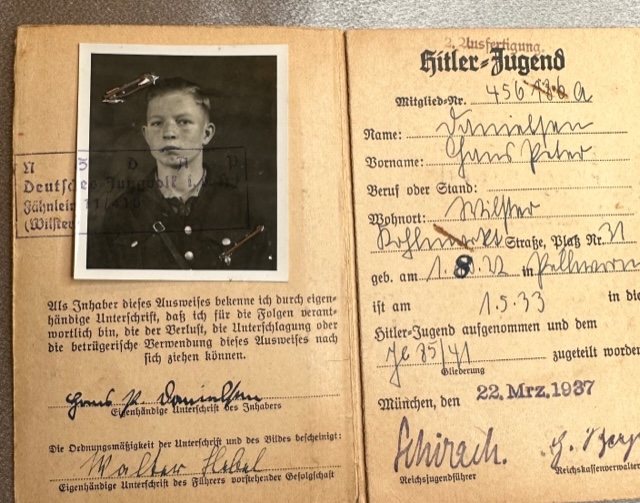 N S D A P
Deutsches Jungvolk i. d.
Fähnlein 11/4
(Wilster
Als Inhaber dieses Ausweises bekenne ich durch eigen-
händige Unterschrift, daß ich für die Folgen verant-
wortlich bin, die der Verlust, die Unterschlagung oder
die betrügerische Verwendung dieses Ausweises nach
sich ziehen können.
Hans P. Danielsen
Eigenhändige Unterschrift des Inhabers
Die Ordnungsmäßigkeit der Unterschrift und des Bildes bescheinigt:
Walter
Eigenhändige Unterschrift des Führers vorstehender Gefolgschaft
2. Ausfertigung.
Hitler-Jugend
Mitglied-Nr. 456 186 A
Name: Danielsen
Vorname: Hans Peter
Beruf oder Stand:
Wohnort: Wilster
Kohlmarkt Straße, Platz Nr. 31
geb. am 1.8.22 in Pellworm
ist am 1.5.33 in die
Hitler-Jugend aufgenommen und dem
35/41 zugeteilt worden
Gliederung
München, den 22. Mrz. 1937
Schirach.
Reichsjugendführer Reichskassenverwalter